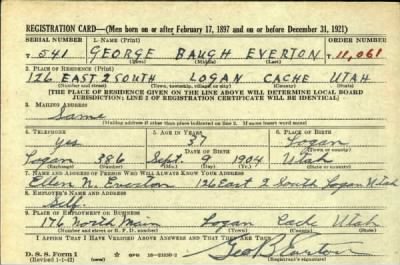 REGISTRATION CARD—(Men born on or after February 17, 1897 and on or before December 31, 1921)
SERIAL NUMBER 1. NAME (Print) ORDER NUMBER
T 541 GEORGE BAUGH EVERTON T 11,061
(First) (Middle) (Last)
2. PLACE OF RESIDENCE (Print)
126 EAST 2 SOUTH LOGAN CACHE UTAH
(Number and street) (Town, township, village or city) (County) (State)
[THE PLACE OF RESIDENCE GIVEN ON THE LINE ABOVE WILL DETERMINE LOCAL BOARD
JURISDICTION; LINE 2 OF REGISTRATION CERTIFICATE WILL BE IDENTICAL]
3. MAILING ADDRESS
Same
[Mailing address if other than place indicated on line 2. If same insert word same]
4. TELEPHONE 5. AGE IN YEARS 6. PLACE OF BIRTH
Yes 37 Logan
DATE OF BIRTH (Town or county)
Logan 386 Sept. 9 1904 Utah
(Exchange) (Number) (Mo.) (Day) (Yr.) (State or country)
7. NAME AND ADDRESS OF PERSON WHO WILL ALWAYS KNOW YOUR ADDRESS
Ellen N. Everton 126 East 2 South Logan Utah
8. EMPLOYER'S NAME AND ADDRESS
Self.
9. PLACE OF EMPLOYMENT OR BUSINESS
174 North Main Logan Cache Utah
(Number and street or R. F. D. number) (Town) (County) (State)
I AFFIRM THAT I HAVE VERIFIED ABOVE ANSWERS AND THAT THEY ARE TRUE.
D. S. S. Form 1
(Revised 1-1-42) (over)
Geo B Everton
(Registrant's signature)